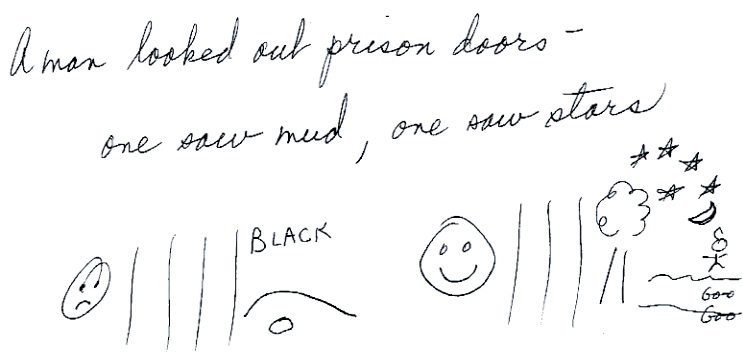 A man looked out prison doors -
one saw mud, one saw stars
BLACK
Goo
Goo